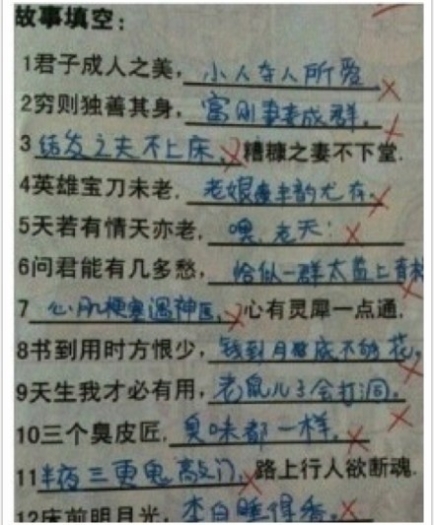 故事填空：
1君子成人之美，小人夺人所爱
2穷则独善其身，富则妻妾成群，
3 结发之夫不上床，糟糠之妻不下堂.
4英雄宝刀未老，老娘丰韵尤存.
5天若有情天亦老，嘿，老天！
6问君能有几多愁，恰似一群太监上青楼
7 心肌梗塞遇神医，心有灵犀一点通，
8书到用时方恨少，钱到月底不够花，
9天生我才必有用，老鼠儿子会打洞。
10三个臭皮匠，臭味都一样，
11半夜三更鬼敲门，路上行人欲断魂.
12床前明月光，李白睡得香。